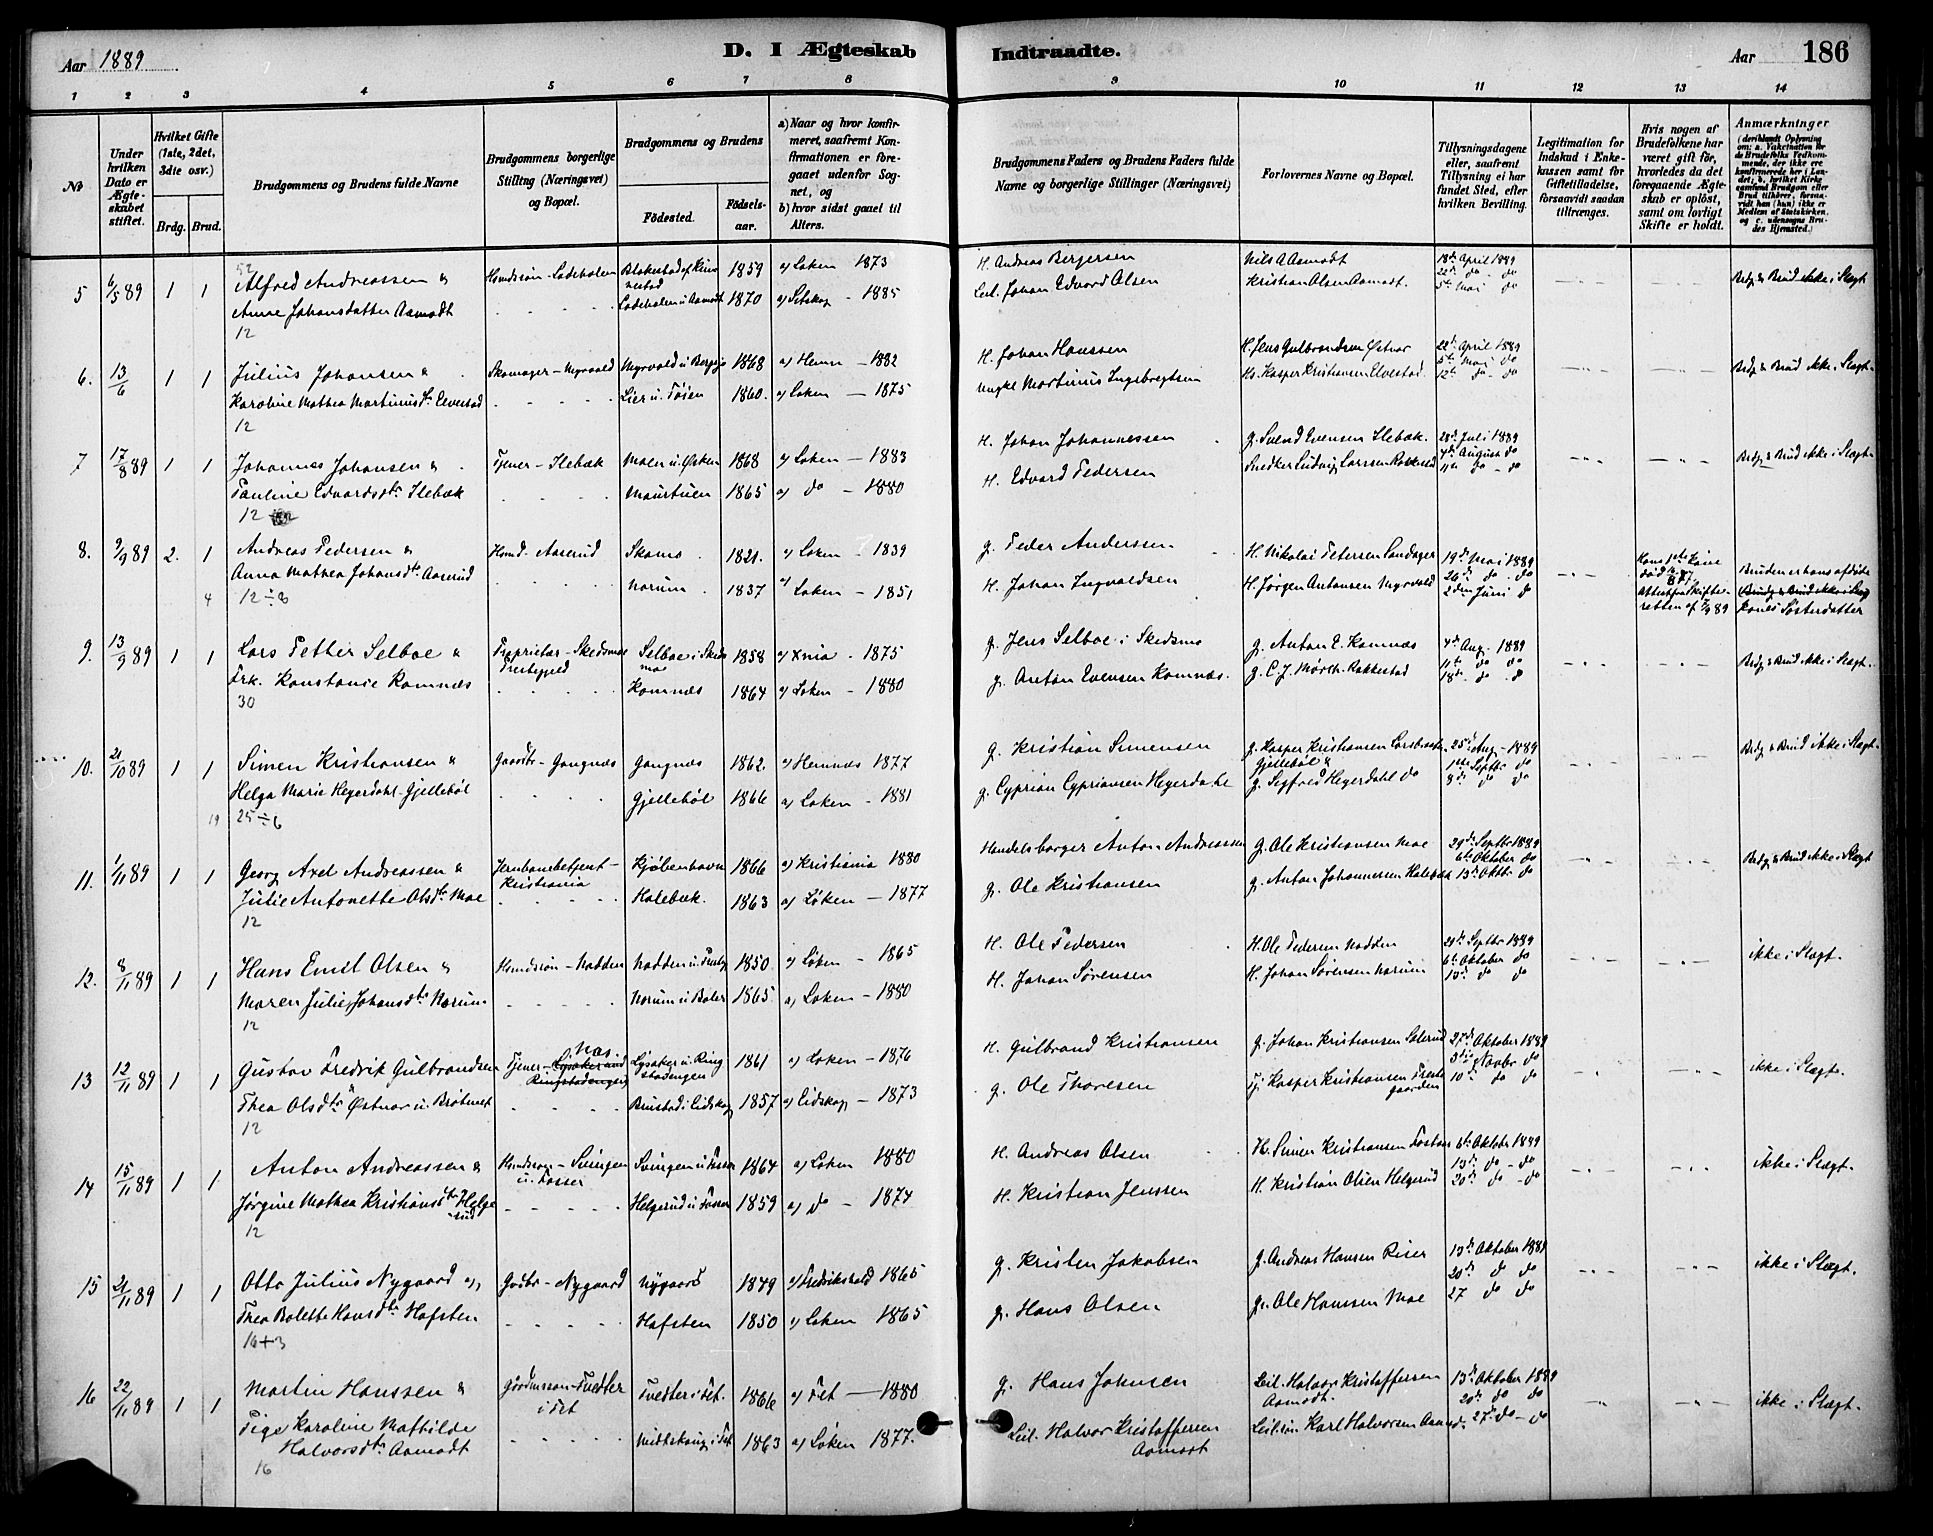 Aar 1889
D. I Ægteskab Indtraadte.
Aar 186
1 2 3 4 5 6 7 8 9 10 11 12 13 14
No
Under hvilken Dato er Ægteskabet stiftet.
Hvilket Gifte (1ste, 2det, 3die osv.)
Brdg. Brud.
Brudgommens og Brudens fulde Navne
Brudgommens borgerlige Stilling (Næringsvei) og Bopæl.
Brudgommens og Brudens
Födested.
Födselsaar.
a) Naar og hvor konfirmeret, saafremt Konfirmationen er foregaaet udenfor Sognet, og
b) hvor sidst gaaet til Alters.
Brudgommens Faders og Brudens Faders fulde Navne og borgerlige Stillinger (Næringsvei)
Forlovernes Navne og Bopæl.
Tillysningsdagene eller, saafremt Tillysning ei har fundet Sted, efter hvilken Bevilling.
Legitimation for Indskud i Enkekassen samt for Giftetilladelse, forsaavidt saadan tiltrænges.
Hvis nogen af Brudefolkene har været gift för, hvorledes da det foregaaende Ægteskab er oplöst, samt om lovligt Skifte er holdt.
Anmærkninger (deriblandt Oplysning om: a. Vakcination for de Brudefolks Vedkommende, der ikke ere konfirmerede her i Landet; b. hvilket Kirkesamfund Brudgom eller Brud tilhörer, forsaavidt han (hun) ikke er Medlem af Statskirken, og c. udensogns Brudes Hjemsted.)
5 6/5 89 1 1 Alfred Andreassen & Husmdssøn - Ladeholen 1859 a) Løken 1873 H. Andreas Bergersen Nils A Aamodt 18de April 1889 Brdg & Brud ikke i Slægt
Anne Johansdatter Aamodt Ladeholen u. Aamodt 1870 a) Setskog - 1885 Leil. Johan Edvard Olsen Kristian Olsen Aamodt. 5te Mai do
12
6. 13/6 1 1 Julius Johansen & Skomager - Myrvold 1868 a) Hemn - 1882 H. Johan Hanssen H. Jens Gulbrandsen Østnor 22de April 1889 Brdg & Brud ikke i Slægt
Karoline Mathea Martinusdtr Elvestad Lier u. Tøien 1860. a) Løken - 1875 Ungkl Martinus Ingebregtsen Hs. Kasper Kristiansen Elvestad. 12te do
12
7 17/8 89 1 1 Johannes Johansen & Tjener - Ilebæk Moen u. Østen 1868 a) Løken - 1883 H. Johan Johannessen g. Svend Evensen Ilebæk. 28de Juli 1889 Brdg & Brud ikke i Slægt
Pauline Edvardsdtr Ilebæk Maurtuen 1865 a) do - 1880 H. Edvard Pedersen Snedker Ludvig Larssen Rakkestad 4de August do
12
8. 9/9 89 2. 1 Andreas Pedersen & Husmd. Aaserud Skamo 1821. a) Løken - 1839 g. Peder Anderssen H. Nikolai Petersen Sandager 19de Mai 1889 Bruden er hans afdøde
Anna Mathea Johansdtr Aaserud Norum 1837 a) Løken - 1851 H. Johan Ingvaldsen H. Jørgen Antonsen Myrvold 26de do do kones Søsterdatter
12÷8 2den Juni do
9. 13/9 89 1 1 Lars Petter Selboe & Proprietær - Skedsmo Præstegjeld Selboe i Skedsmo 1858 a) Xnia - 1875 g. Jens Selboe i Skedsmo g. Anton E. Komnæs 4de Aug. 1889 Brdg & Brud ikke i Slægt.
Frk. Konstance Komnæs Komnæs 1864 a) Løken - 1880 g. Anton Evensen Komnæs. g. C. J. Mørch. Rakkestad 11te do do
30 18de do do
10. 21/10 89 1 1 Simen Kristiansen & Gaardbr - Gangnæs Gangnæs 1862. a) Hemnæs 1877 g. Kristian Simensen g. Kasper Kristiansen 25de Aug - 1889 Brdg & Brud ikke i Slægt.
Helga Marie Hegerdahl - Gjellebøl Gjellebøl 1866 a) Løken - 1881 g. Cyprian Cypriansen Heyerdahl g. Sigfred Heyerdahl do 1ste Septbr do
25÷6 8de do do
11. 1/11 89 1 1 Georg Axel Andreassen & Jernbanebetjent - Kristiania Kjøbenhavn 1866 a) Kristiania 1880 Handelsborger Anton Andreassen g. Ole Kristiansen Moe 29de Septbr 1889 Brdg & Brud ikke i Slægt
Julie Antonette Olsdtr Moe Holebæk. 1863 a) Løken - 1877 g. Ole Kristiansen g. Anton Johannesen Holebæk 6te Oktober do
12 13de Oktbr do
12. 8/11 89 1 1 Hans Emil Olsen & Husmdssøn - Nadden 1850 a) Løken - 1865 H. Ole Pedersen H. Ole Pedersen Nadden 29de Septbr 1889 ikke i Slægt.
Maren Julie Johansdtr Norum Norum u. Boler 1865. a) Løken - 1880 H. Johan Sørensen H. Johan Sørensen Norum 6te Oktober do
12 13de do do
13 12/11 89 1 1 Gustav Fredrik Gulbrandsen & Tjener - Næs Lysaker u. Ringstadengen 1861 a) Løken - 1876 H. Gulbrand Kristiansen g. Johan Kristiansen 27de Oktober 1889 ikke i Slægt.
Thea Olsdtr Østnor u. Bråtnet i Eidskog 1857 a) Eidskog - 1873 g. Ole Thoresen Tj. Kasper Kristiansen Prestegaarden 3die Novbr do
12 10de do do
14 15/11 89 1 1 Anton Andreassen & Husmdssøn - Svingen u. Fosser Svingen u. Fosser 1864 a) Løken 1880 H. Andreas Olsen Hs. Simen Kristiansen 6te Oktober 1889 ikke i Slægt.
Jørgine Mathea Kristiansdtr Helgerud Helgerud u. Fosser 1859 a) do - 1874 H. Kristian Jenssen H. Kristian Olsen Helgerud 13de do - do
12 20de do - do
15 21/11 89 1 1 Otto Julius Nygaard og Gaardbr - Nygaard Nygaard 1849 a) Fredrikshald 1865 g. Kristen Jakobsen g. Andreas Hansen Riser 13de Oktober 1889 ikke i Slægt.
Thea Bolette Hansdtr Hafsten Hafsten 1850 a) Løken 1865 g. Hans Olsen g. Ole Hanssen Moe 20de do do
16+3 27 do do
16 22/11 89 1 1 Martin Hanssen & Gaardmssøn - Tvedter i Fet Tvedter i Fet. 1866 a) Fet - 1880 g. Hans Johnsen Leil. Halvor Kristoffersen Aamodt 13de Oktober 1889 ikke i Slægt.
Pige Karoline Mathilde Halvorsdtr Aamodt 1863 a) Løken 1877. Leil. Halvor Kristoffersen Aamodt Leil.søn Karl Halvorsen 20de do do
16 27de do - do